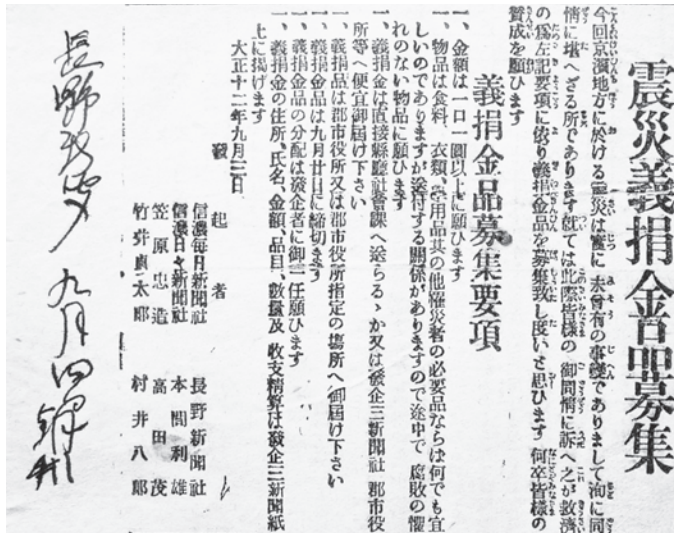 震災義捐金品募集
今回京濱地方に於ける震災は實に未曾有の事變でありまして洵に同
情に堪へざる所であります就ては此際皆様の御同情に訴へ之が救濟
の爲左記要項に依り義捐金品を募集致し度いと思ひます何卒皆様の
賛成を願ひます
義捐金品募集要項
一、金額は一口一圓以上に願ひます
一、物品は食料、衣類、常用品其の他罹災者の必要品ならば何でも宜
しいのでありますが送付する關係がありますので途中で腐敗の懼
れのない物品に願ひます
一、義捐金は直接縣廳社會課へ送らるゝか又は發企三新聞社郡市役
所等へ便宜御届け下さい
一、義捐品は郡市役所又は郡市役所指定の塲所へ御届け下さい
一、義捐金品は九月廿日に締切ます
一、義捐金品の分配は發企者に御一任願ひます
一、義捐金の住所、氏名、金額、品目、數量及收支精算は發企三新聞紙
上に揭げます
大正十二年九月三日
發起者
信濃毎日新聞社 長野新聞社
信濃日々新聞社 本間利雄
笠原忠造 高田茂
竹井貞太郎 村井八郎
九月四日